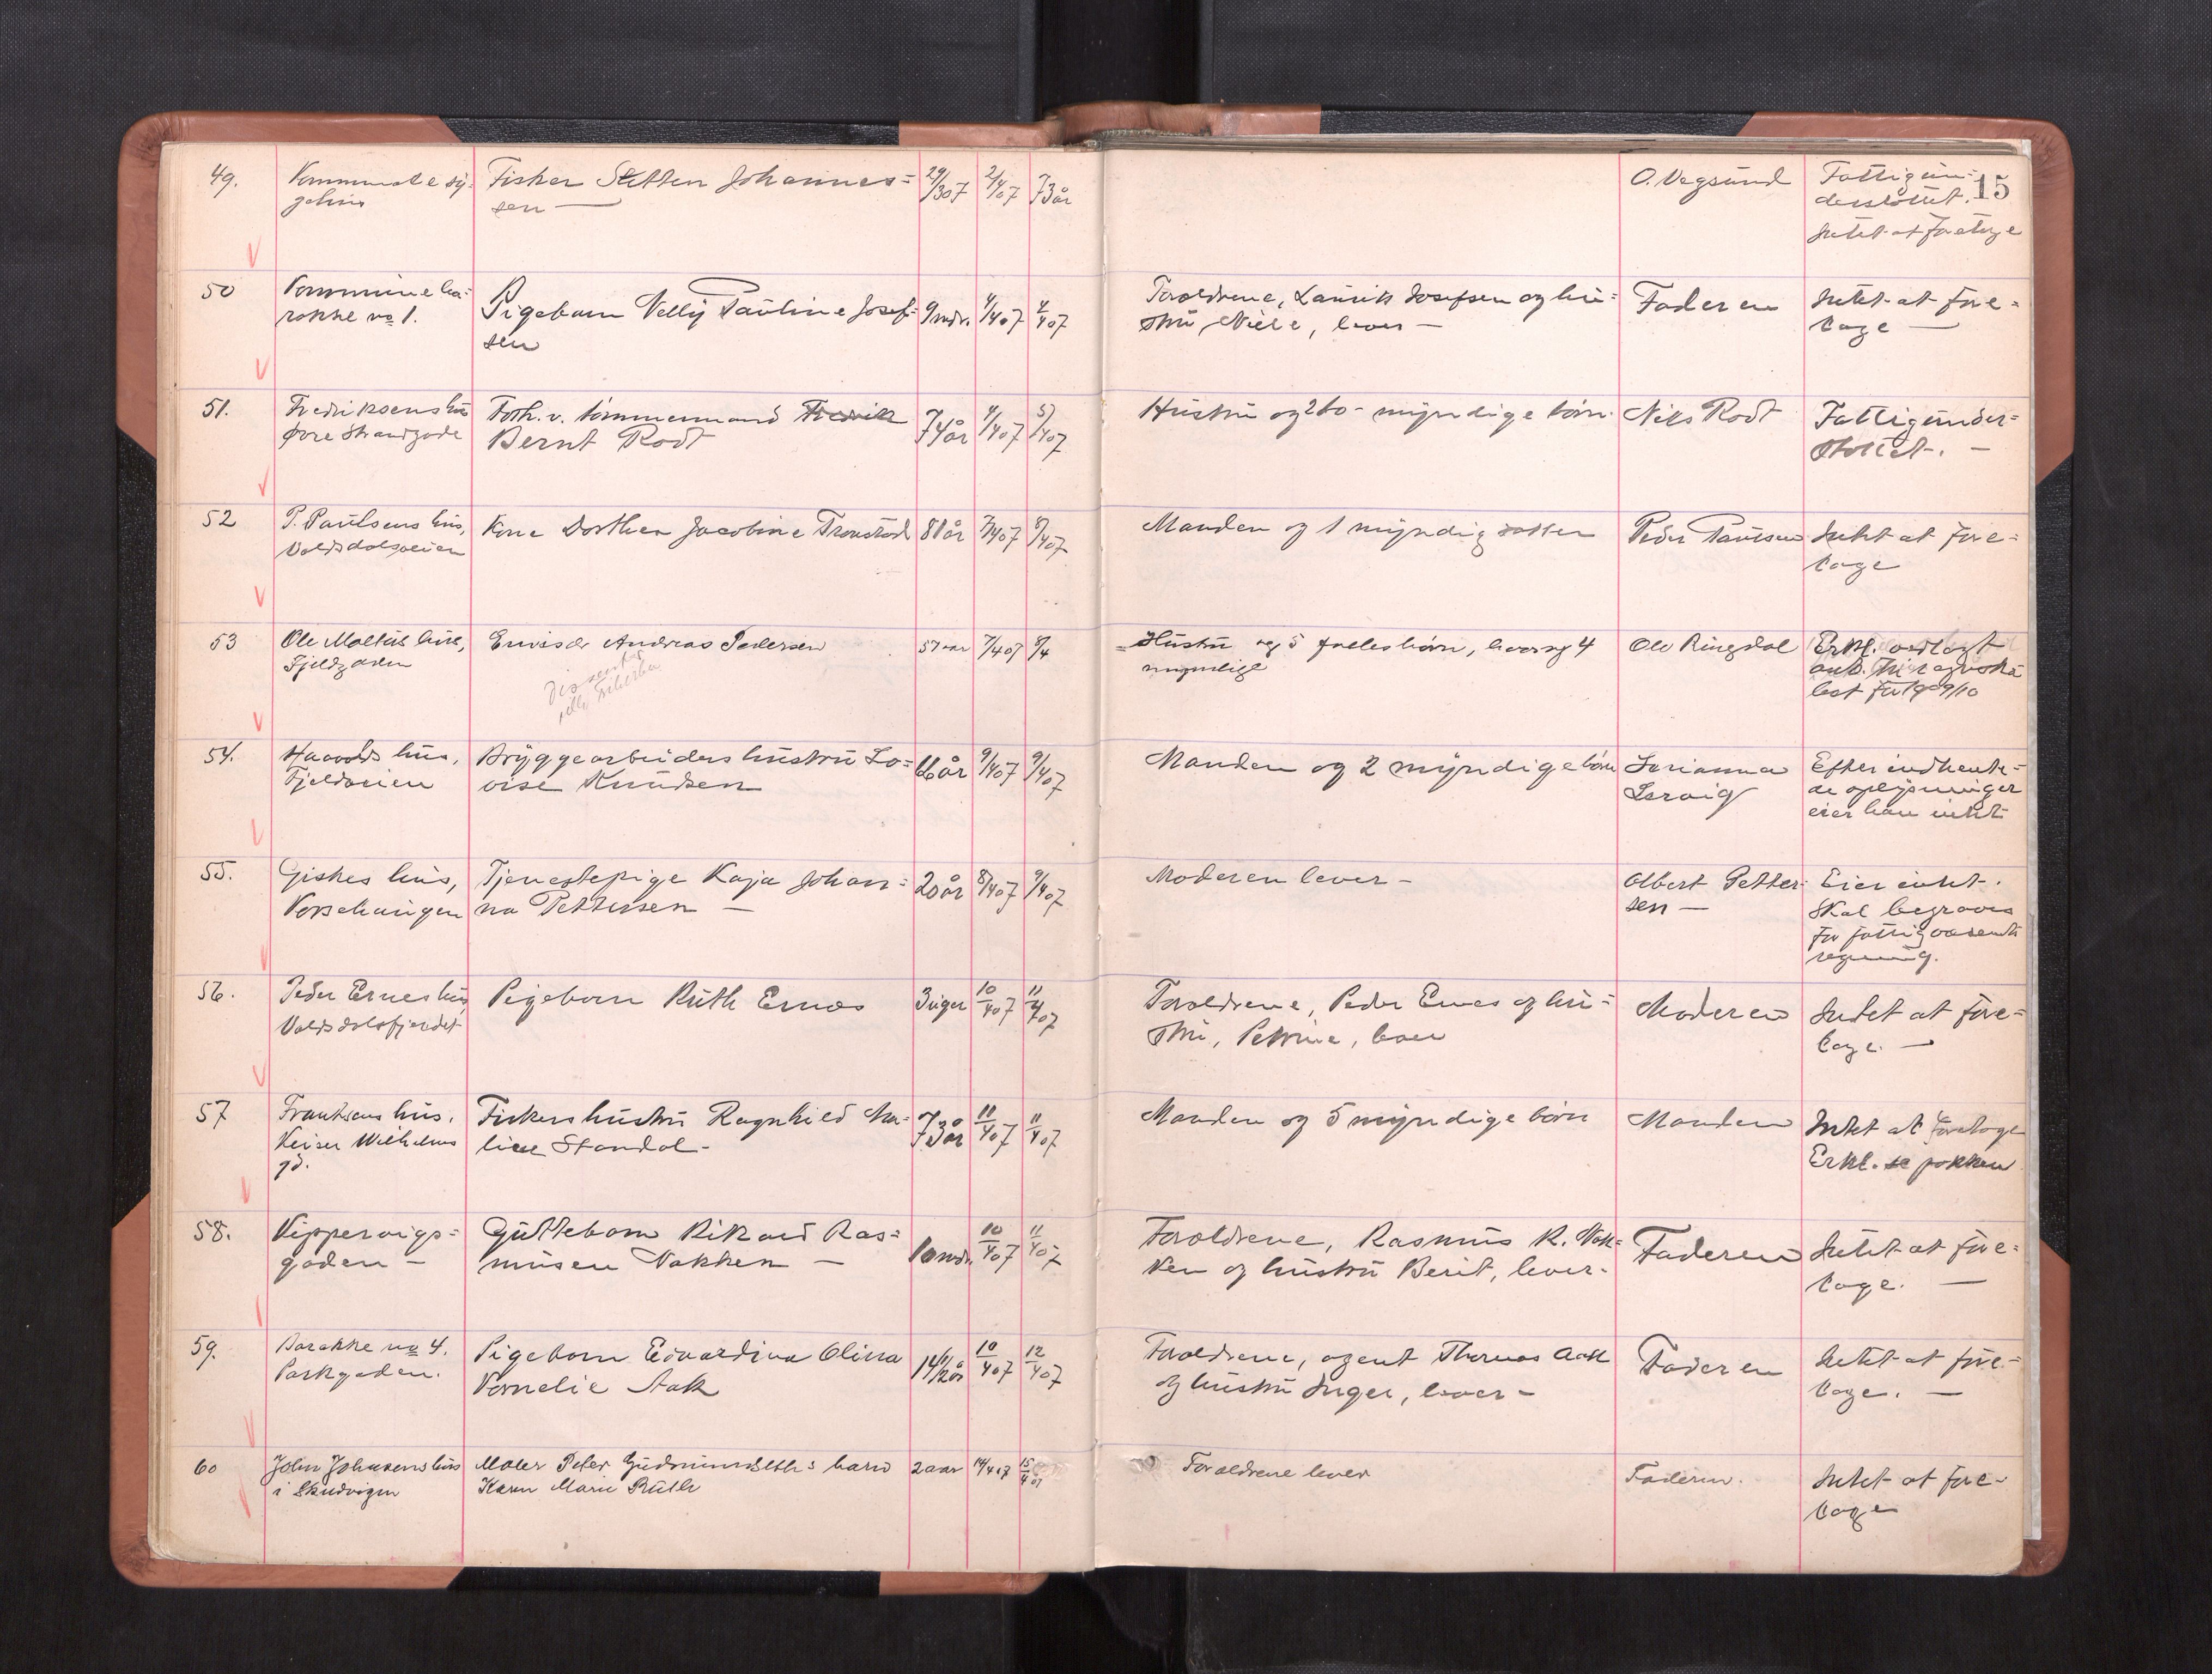 15
49.
Kommunale sy-
gehus
Fisker Steffen Johannes=
sen —
29/3 07
2/4 07
73 år
O. Vegsund
Fattigun=
derstöttet.
Intet at foretage
50
Kommuneba=
rakke no 1.
Pigebarn Nelly Pauline Josef=
sen
9 mdr.
4/4 07
4/4 07
Forældrene, Laurik Josefsen og hu=
stru, lever —
Faderen
Intet at fore=
tage —
51.
Fredriksens hus
øvre Strandgade
Forh. v. tømmermand Fredrik
Bernt Rodt
74 år
4/4 07
5/4 07
Hustru og 2 to- myndige børn.
Nils Rodt
Fattigunder=
støttet. —
52
P. Paulsens hus,
Voldsdalsveien
Kone Dorthea Jacobine Tronstad
81 år
7/4 07
8/4 07
Manden og 1 myndig datter
Peder Paulsen
Intet at fore=
tage
53
Ole Moltus hus,
Fjeldgaden
Andreas Pedersen
Dissenter
57 aar
7/4 07
8/4
Hustru og 5 fælles børn, hvoraf 4
myndige
Ole Ringdal
Erkl. vedlagt
54.
Haavolds hus,
Fjeldveien
Bryggearbeiders hustru Lo=
vise Knudsen
66 år
9/4 07
9/4 07
Manden og 2 myndige børn
Efter indhente=
de oplysninger
eier han intet
55.
Giskes hus,
Verschaugen
Tjenestepige Kaja Johan=
na Pettersen —
20 år
8/4 07
9/4 07
Moderen lever —
Albert Petter-
sen —
Eier intet.
Skal begraves
for fattigvæsenets
regning.
56.
Peder Ernes hus,
Voldsdalsfjeldet
Pigebarn Ruth Ernes
3 uger
10/4 07
11/4 07
Forældrene, Peder Ernes og hu=
stru, Petrine, lever
Moderen
Intet at fore=
tage. —
57
Frantsens hus.
Keiser Wilhelms
gd.
Fiskers hustru Ragnhild Ma=
line Standal —
73 år
11/4 07
11/4 07
Manden og 5 myndige børn
Manden
Intet at foretage
Erkl. se pakken
58.
Kippervigs=
gaden —
Guttebarn Rikard Ras=
musen Nakken —
10 mdr.
10/4 07
11/4 07
Forældrene, Rasmus R. Nak=
ken og hustru Berit, lever.
Faderen
Intet at fore=
tage. —
59.
Barakke no 4.
Parkgaden.
Pigebarn Edvardina Olina
Kornelie Aak
14 1/2 år
10/4 07
12/4 07
Forældrene, agent Thomas Aak
og hustru Inger, lever —
Faderen
Intet at fore=
tage. —
60
John Johnsens hus
i Skudvigen
Maler Peter Gudmundseths barn
Karen Marie Ruth
2 aar
14/4 07
15/4 07
Forældrene lever
Faderen.
Intet at fore-
tage